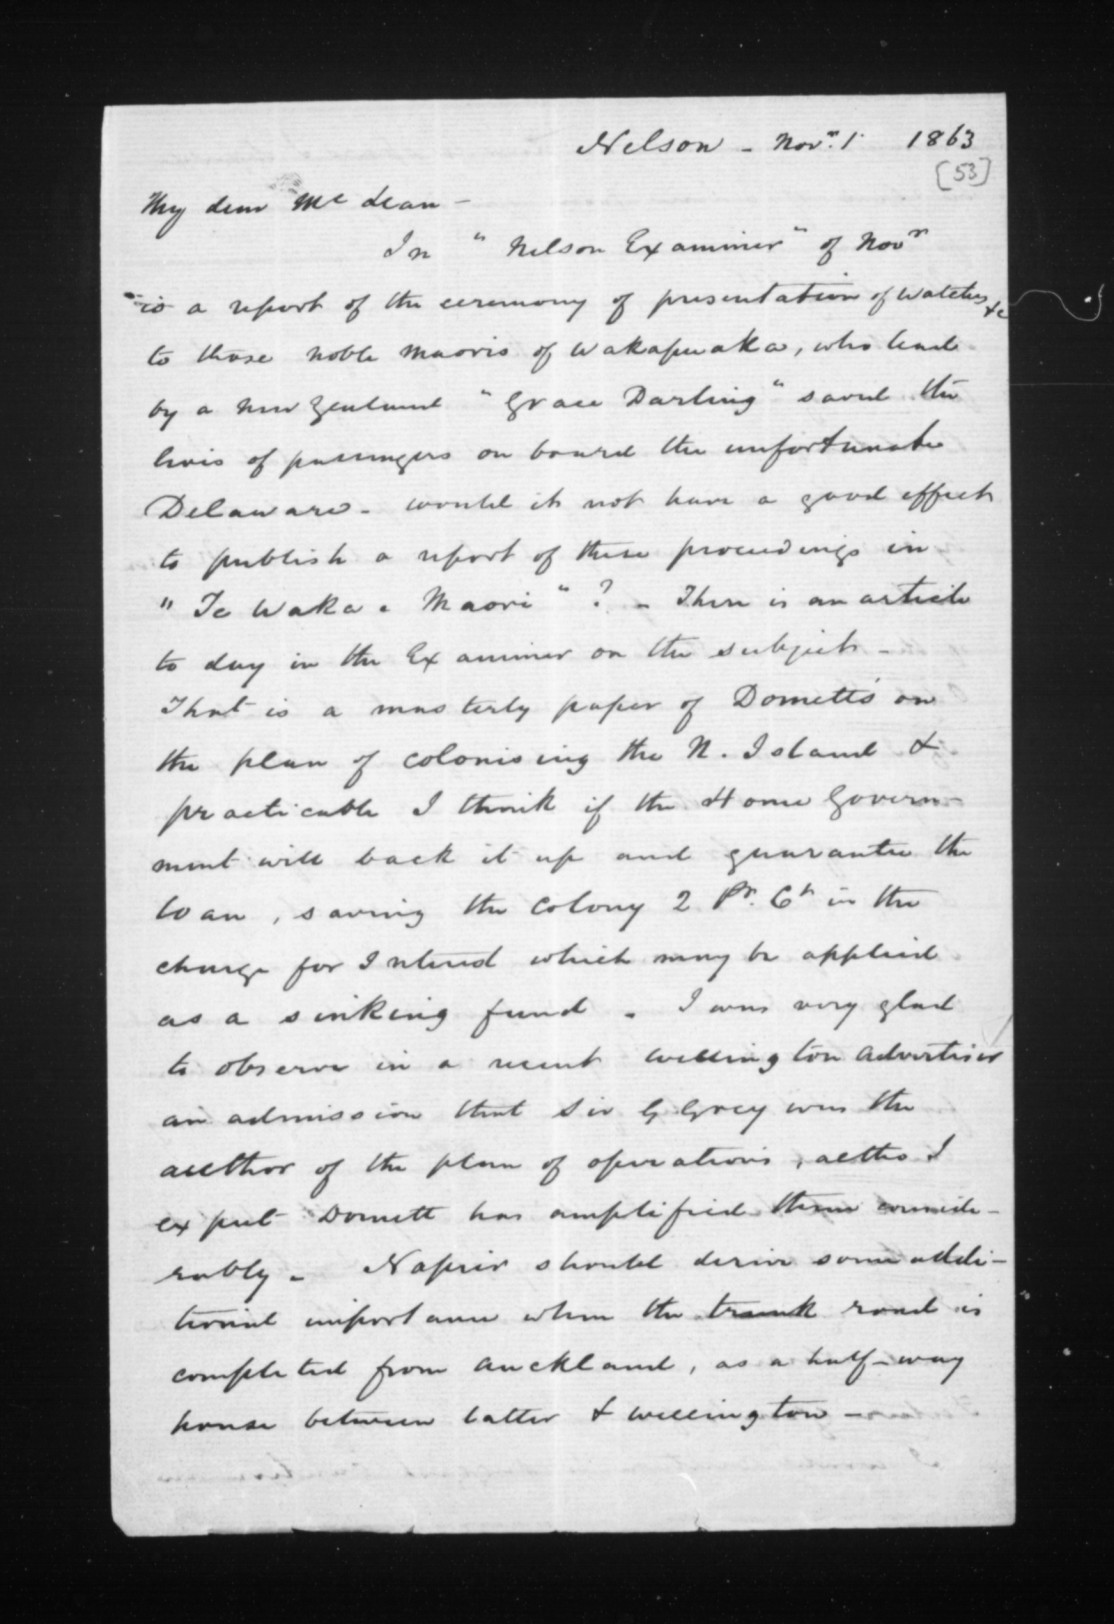 Nelson - Novr. 1 1863
[53]
My dear McLean -
In "Nelson Examiner" of Novr
is a report of the ceremony of presentation of Watches &c
to those noble Maoris of Wakapuaka, who lead
by a New Zealand "Grace Darling" saved the
lives of passengers on board the unfortunate
Delaware - would it not have a good effect
to publish a report of these proceedings in
"Te Waka o Maori"? - There is an article
to day in the Examiner on the subject -
That is a masterly paper of Dometts on
the plan of colonising the N. Island &
practicable I think if the Home Govern-
ment will back it up and guarantee the
loan, saving the Colony 2 Pr. Ct in the
charge for Interest which may be applied
as a sinking fund. I was very glad
to observe in a recent Wellington Advertiser
an admission that Sir G Grey was the
author of the plan of operations, altho I
expect Domett has amplified them conside-
rably - Napier should derive some addi-
tional importance when the trunk road is
completed from Auckland, as a half-way
house between latter & Wellington -